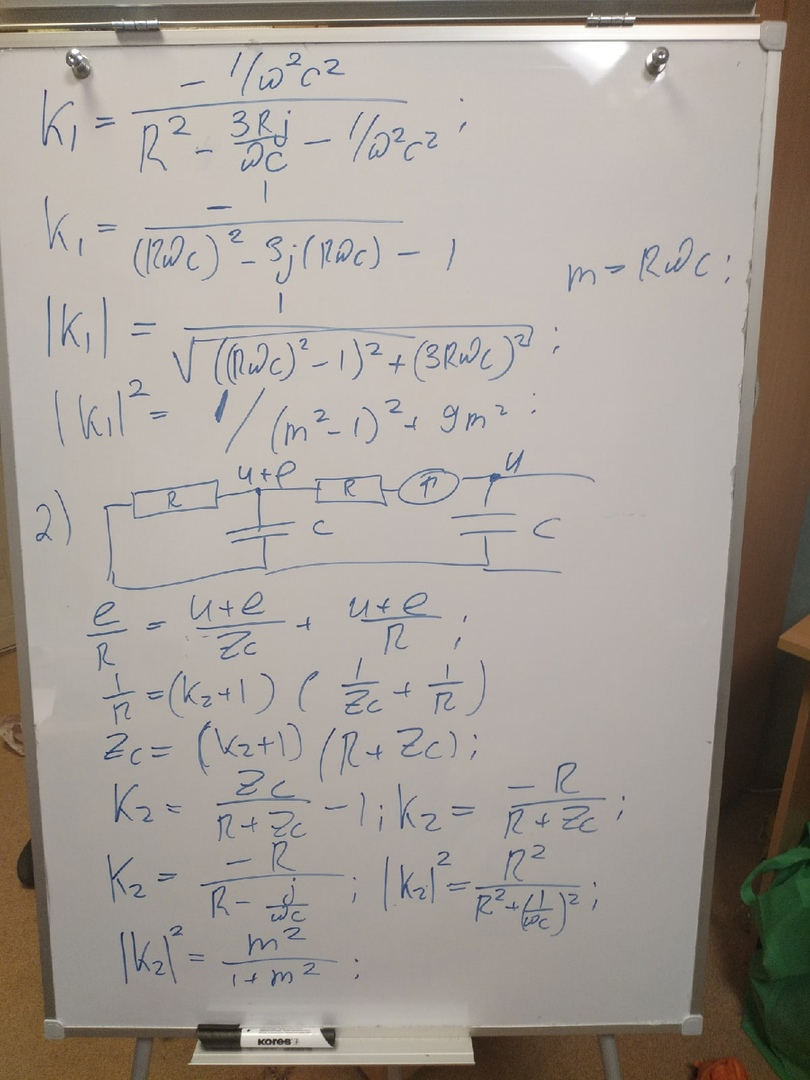 K₁ = (- 1/ω²c²) / (R² - 3Rj/ωc - 1/ω²c²) ;
K₁ = (- 1) / ((Rωc)² - 3j(Rωc) - 1)
m = Rωc ;
|K₁| = 1 / √(((Rωc)² - 1)² + (3Rωc)²) ;
|K₁|² = 1/(m² - 1)² + 9m² ;
2)
u+e
u
R
R
↑
C
C
e/R = (u+e)/Zc + (u+e)/R ;
1/R = (K₂+1) (1/Zc + 1/R)
Zc = (K₂+1) (R + Zc) ;
K₂ = Zc/(R + Zc) - 1 ; K₂ = (- R)/(R + Zc) ;
K₂ = (- R)/(R - j/ωc) ; |K₂|² = R²/(R² + (1/ωc)²) ;
|K₂|² = m²/(1 + m²) ;
KORES